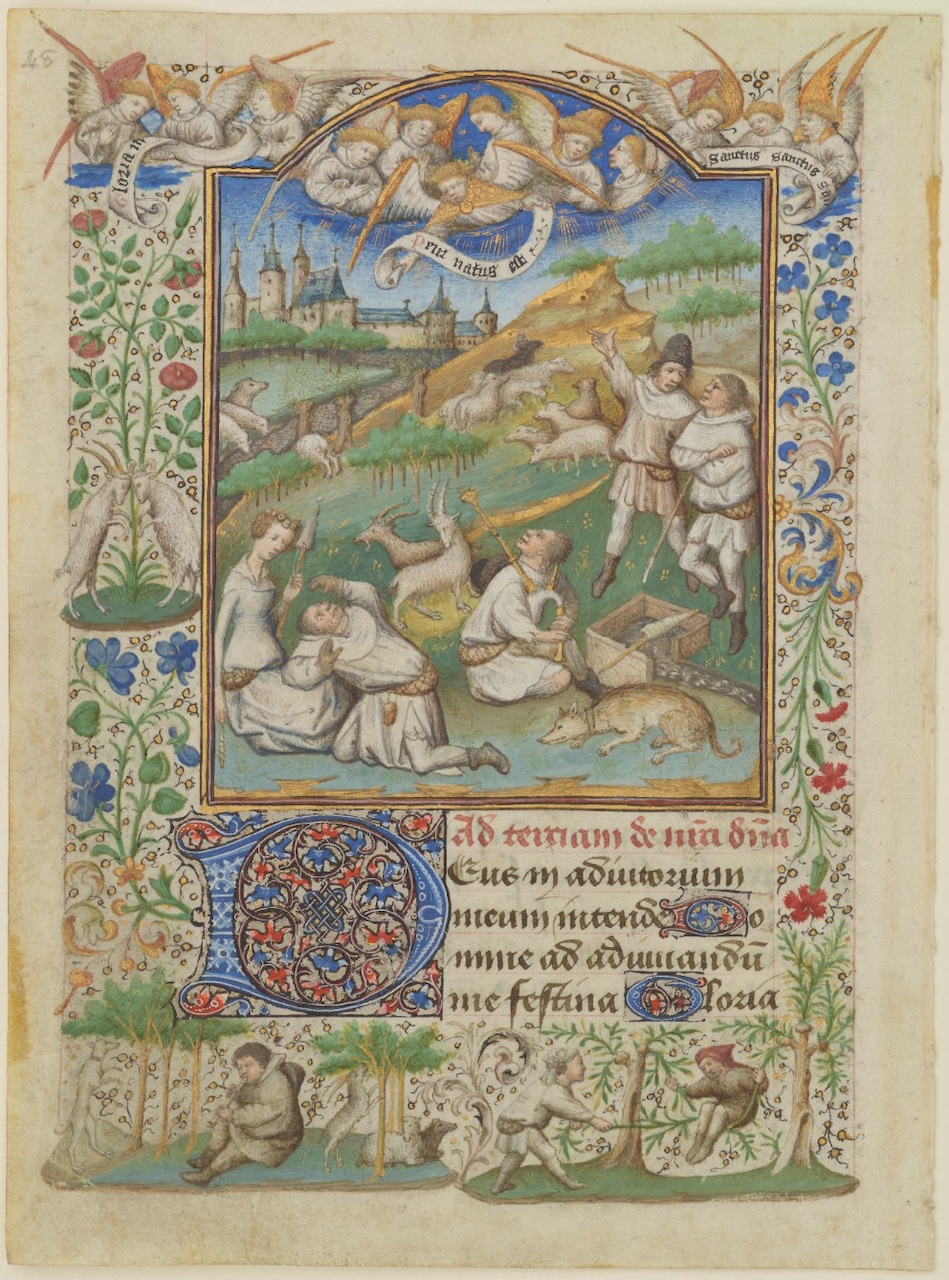 48
Gloria in
Sanctus Sanctus San
Puer natus est
Ad terciam de nr̄a dn̄a
DEus in adiutorium
meum intende Do
mine ad adiuuandū
me festina Gloria